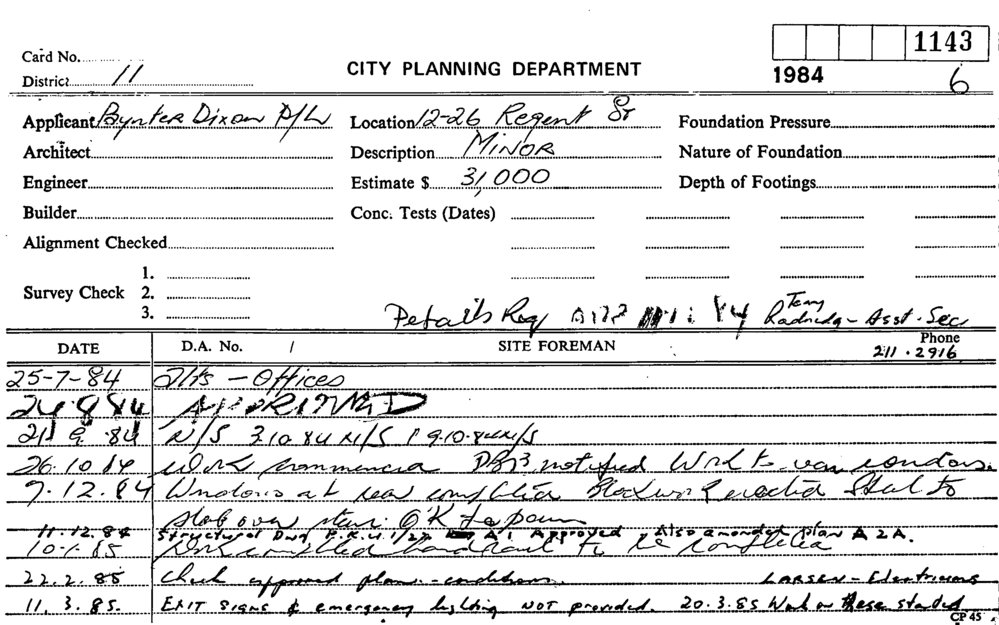 1143
Card No.
CITY PLANNING DEPARTMENT
1984 6
District 11
Applicant Paynter Dixon P/L Location 12-26 Regent St Foundation Pressure
Architect Description MINOR Nature of Foundation
Engineer Estimate $ 31,000 Depth of Footings
Builder Conc. Tests (Dates)
Alignment Checked
1.
Survey Check 2.
3.
Details Req 84 Terry - Asst. Sec
DATE D.A. No. / SITE FOREMAN Phone
211.2916
25-7-84 Alts - Offices
24.8.84 APPROVED
21.9.84 N/S 3.10.84 N/S 19.10.84 N/S
26.10.84 Work notified Work to
7.12.84 Windows at rear Blockwork erected Steel to
slab over stair. O'K to pour
11.12.84 Structural Dwg A1 Approved. Also amended plan A2A.
10.1.85 Work completed handrail to be completed
22.2.85 Check approved plans - conditions. LARSEN - Electricians
11.3.85. EXIT signs & emergency lighting NOT provided. 20.3.85 Work on these started
CP 45